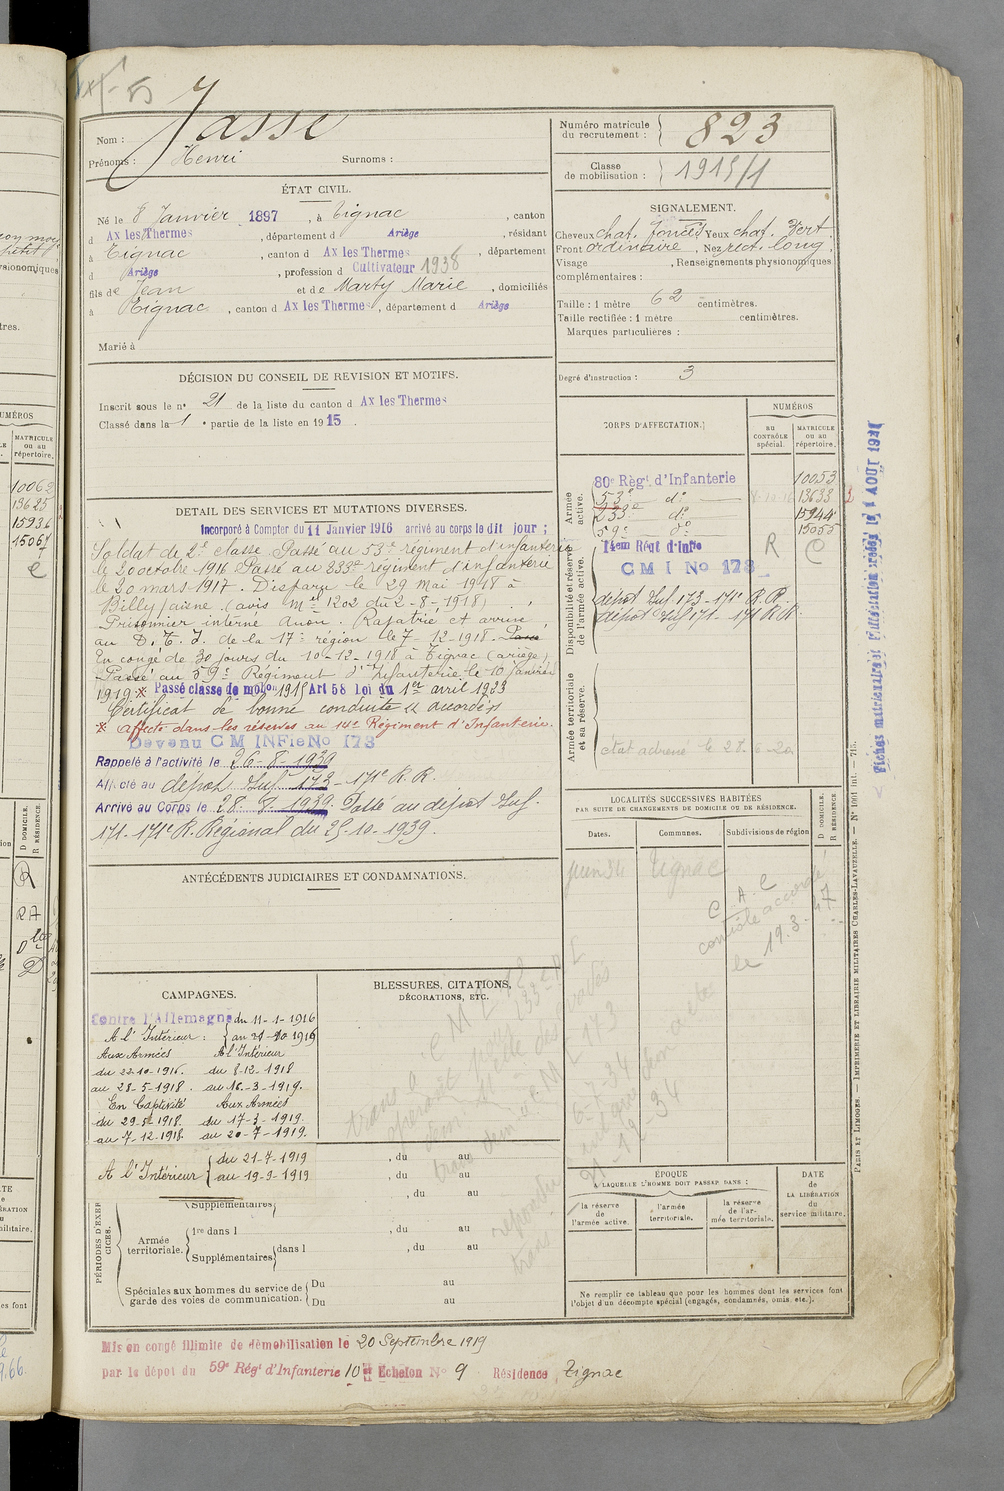 Nom : Jasse
Prénoms : Henri Surnoms :
ÉTAT CIVIL.
Né le 8 Janvier 1897, à Tignac, canton
d Ax les Thermes, département d Ariège, résidant
à Tignac, canton d Ax les Thermes, département
d Ariège, profession d Cultivateur 1938
fils de Jean et de Marty Marie, domiciliés
à Tignac, canton d Ax les Thermes, département d Ariège
Marié à
DÉCISION DU CONSEIL DE REVISION ET MOTIFS.
Inscrit sous le n° 21 de la liste du canton d Ax les Thermes
Classé dans la 1 e partie de la liste en 1915.
DETAIL DES SERVICES ET MUTATIONS DIVERSES.
Incorporé à Compter du 11 Janvier 1916 arrivé au corps le dit jour ;
Soldat de 2e classe. Passé au 53e régiment d'infanterie
le 20 octobre 1916 Passé au 233e régiment d'infanterie
le 20 mars 1917. Disparu le 29 Mai 1918 à
Billy s/aisne. (avis Mel 1202 du 2-8-1918)
Prisonnier interné Rapatrié et arrivé
au D. T. I. de la 17e région le 7-12-1918. Passé
En congé de 30 jours du 10-12-1918 à Tignac (ariège)
Passé au 59e Régiment d'Infanterie le 10 Janvier
1919 x Passé classe de mob on 1915 Art 58 Loi du 1er avril 1923
Certificat de bonne conduite accordé
x affecté dans les réserves au 14e Régiment d'Infanterie.
Devenu C M INFie No 173
Rappelé à l'activité le 26-8-1939
Affecté au dépôt Inf 173 - 171e R. R.
Arrivé au Corps le 28-8-1939. Passé au dépôt Inf.
171-171e R. Régional du 25-10-1939.
ANTÉCÉDENTS JUDICIAIRES ET CONDAMNATIONS.
CAMPAGNES.
Contre l'Allemagne du 11-1-1916
A l'Intérieur : au 21-10-1916
Aux Armées A l'Intérieur
du 22-10-1916. du 8-12-1918
au 28-5-1918. au 16-3-1919.
En Captivité Aux Armées
du 29-5-1918. du 17-3-1919.
au 7-12-1918 au 20-7-1919.
A l'Intérieur du 21-7-1919
au 19-9-1919
BLESSURES, CITATIONS,
DÉCORATIONS, ETC.
, du au
, du au
, du au
PÉRIODES D'EXERCICES.
Supplémentaires
Armée territoriale.
1re dans l , du au
Supplémentaires dans l , du au
Spéciales aux hommes du service de
garde des voies de communication.
Du au
Du au
Numéro matricule
du recrutement : 823
Classe
de mobilisation : 1915/1
SIGNALEMENT.
Cheveux chat. foncés Yeux chat. vert
Front ordinaire, Nez rect. long.
Visage , Renseignements physionomiques
complémentaires :
Taille : 1 mètre 62 centimètres.
Taille rectifiée : 1 mètre centimètres.
Marques particulières :
Degré d'instruction : 3
CORPS D'AFFECTATION.
NUMÉROS
au CONTRÔLE spécial.
MATRICULE ou au répertoire.
Armée active.
80e Régt d'Infanterie 10053
53e do 13633
233e do 15944
59e do 15055
Disponibilité et réserve de l'armée active.
14em Régt d'Infie R C
C M I No 173
dépôt Inf 173-171e R.R.
dépôt Inf 171-171 R.R.
Armée territoriale et sa réserve.
état adressé le 28-6-20
LOCALITÉS SUCCESSIVES HABITÉES
PAR SUITE DE CHANGEMENTS DE DOMICILE OU DE RÉSIDENCE.
Dates. Communes. Subdivisions de région D DOMICILE. R RÉSIDENCE
juin 34 Tignac
C. A. C
contrôle accordé
le 19.3-47
ÉPOQUE
A LAQUELLE L'HOMME DOIT PASSER DANS :
la réserve de l'armée active.
l'armée territoriale.
la réserve de l'armée territoriale.
DATE de LA LIBÉRATION du service militaire.
Ne remplir ce tableau que pour les hommes dont les services font
l'objet d'un décompte spécial (engagés, condamnés, omis, etc.).
PARIS ET LIMOGES. — IMPRIMERIE ET LIBRAIRIE MILITAIRES CHARLES-LAVAUZELLE. — N° 1001 int. — 715.
Mis en congé illimité de démobilisation le 20 Septembre 1919
par le dépôt du 59e Régt d'Infanterie 10 Echelon N° 9 Résidence Tignac